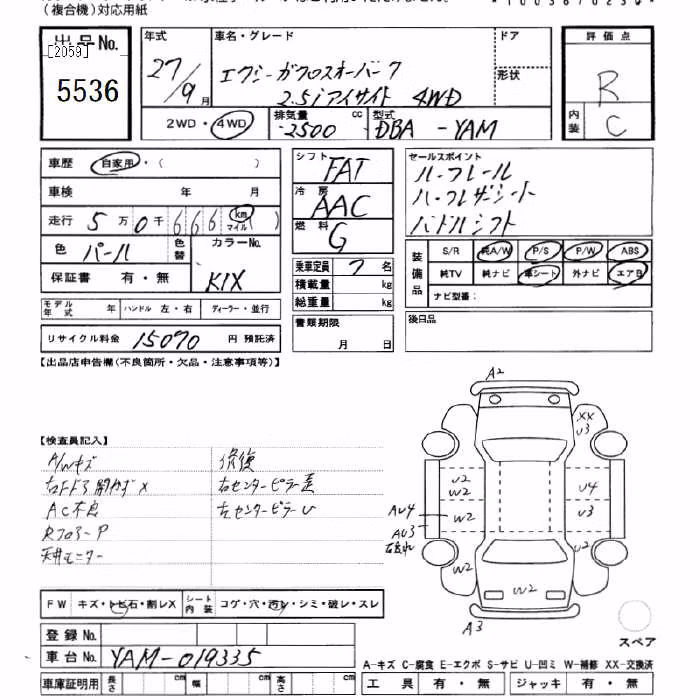 (複合機)対応用紙
出品No.
[2059]
5536
年式
27/9月
車名・グレード
エクシーガクロスオーバー7
2.5iアイサイト 4WD
ドア
形状
評価点
R
内装
C
2WD・4WD
排気量 cc
2500
型式
DBA-YAM
車歴 自家用・( )
車検 年 月
走行 5万0千666 km マイル ( )
色 パール
色替
カラーNo.
K1X
保証書 有・無
モデル年式 年 ハンドル 左・右 ディーラー・並行
リサイクル料金 15070 円 預託済
シフト FAT
冷房 AAC
燃料 G
乗車定員 7 名
積載量 kg
総重量 kg
書類期限
月 日
セールスポイント
ルーフレール
ハーフレザーシート
パドルシフト
装備品
S/R 純A/W P/S P/W ABS
純TV 純ナビ 革シート 外ナビ エアB
ナビ型番:
後日品
【出品店申告欄(不良箇所・欠品・注意事項等)】
【検査員記入】
A/Wキズ
AC不良
RフロアーP
天井モニター
修復
右センターピラー
左センターピラーU
A2
XX
U3
U2
W2
U4
W2
U3
AU4
AU3
W2
U2
W2
A3
スペア
FW キズ・トビ石・割レX
シート内装 コゲ・穴・汚レ・シミ・破レ・スレ
登録No.
車台No. YAM-019335
車庫証明用 長さ cm 幅 cm 高さ cm
A-キズ C-腐食 E-エクボ S-サビ U-凹ミ W-補修 XX-交換済
工具 有・無 ジャッキ 有・無